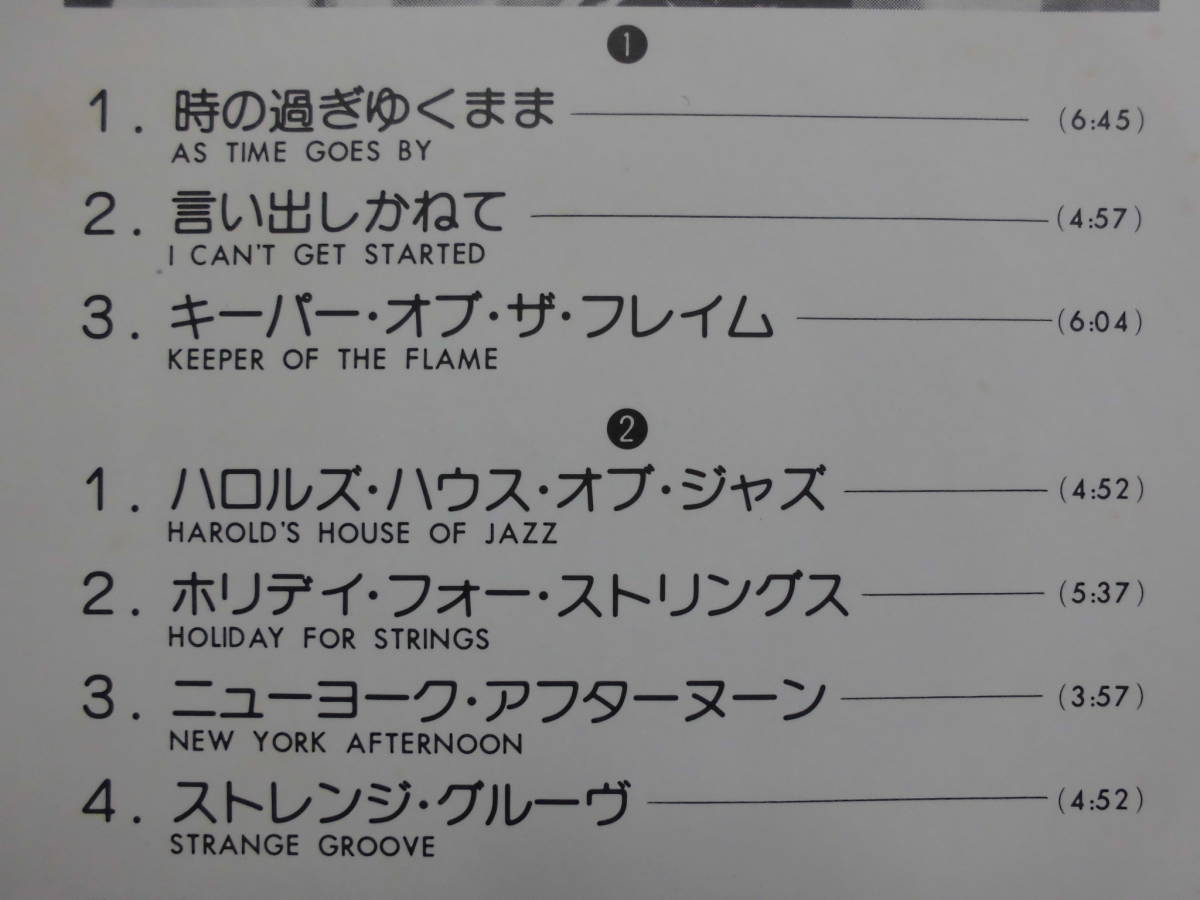 1
1. 時の過ぎゆくまま (6:45)
AS TIME GOES BY
2. 言い出しかねて (4:57)
I CAN'T GET STARTED
3. キーパー・オブ・ザ・フレイム (6:04)
KEEPER OF THE FLAME
2
1. ハロルズ・ハウス・オブ・ジャズ (4:52)
HAROLD'S HOUSE OF JAZZ
2. ホリデイ・フォー・ストリングス (5:37)
HOLIDAY FOR STRINGS
3. ニューヨーク・アフターヌーン (3:57)
NEW YORK AFTERNOON
4. ストレンジ・グルーヴ (4:52)
STRANGE GROOVE